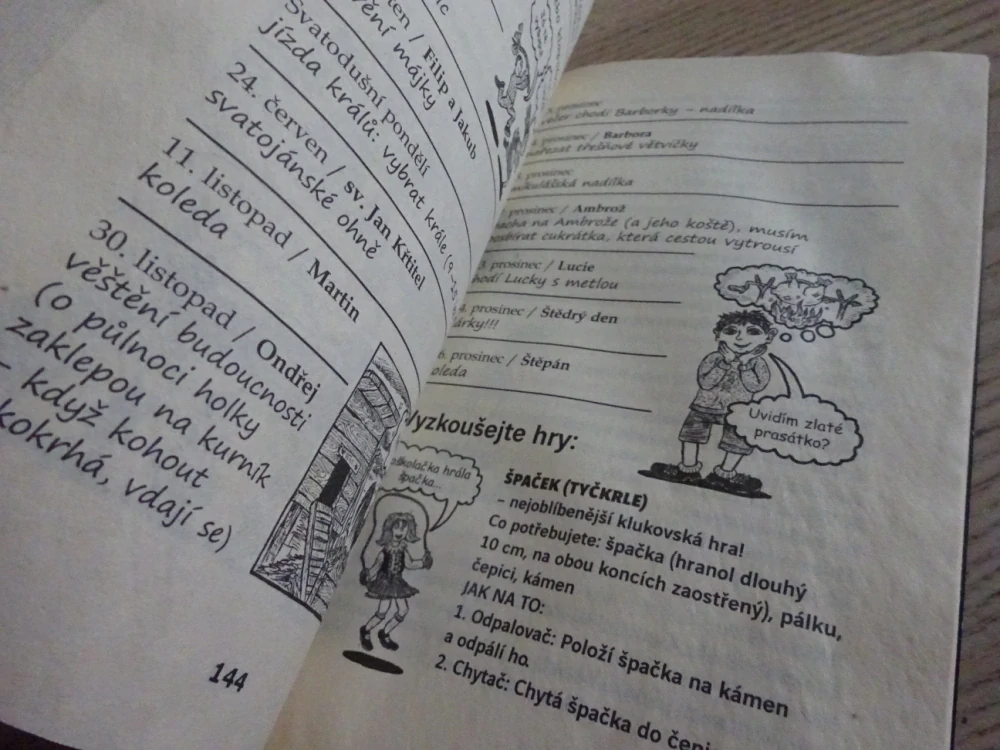 Filip a Jakub
májky
Svatodušní pondělí
jízda králů: vybrat krále
24. červen / sv. Jan Křtitel
svatojánské ohně
11. listopad / Martin
koleda
30. listopad / Ondřej
věštění budoucnosti
(o půlnoci holky
zaklepou na kurník
– když kohout
kokrhá, vdají se)
144
prosinec
chodí Barborky – nadílka
prosinec / Barbora
třešňové větvičky
prosinec
nadílka
prosinec / Ambrož
na Ambrože (a jeho koště), musím
cukrátka, která cestou vytrousí
prosinec / Lucie
Lucky s metlou
prosinec / Štědrý den
prosinec / Štěpán
Uvidím zlaté
prasátko?
Vyzkoušejte hry:
hrála
špačka...
ŠPAČEK (TYČKRLE)
– nejoblíbenější klukovská hra!
Co potřebujete: špačka (hranol dlouhý
10 cm, na obou koncích zaostřený), pálku,
čepici, kámen
JAK NA TO:
1. Odpalovač: Položí špačka na kámen
a odpálí ho.
2. Chytač: Chytá špačka do